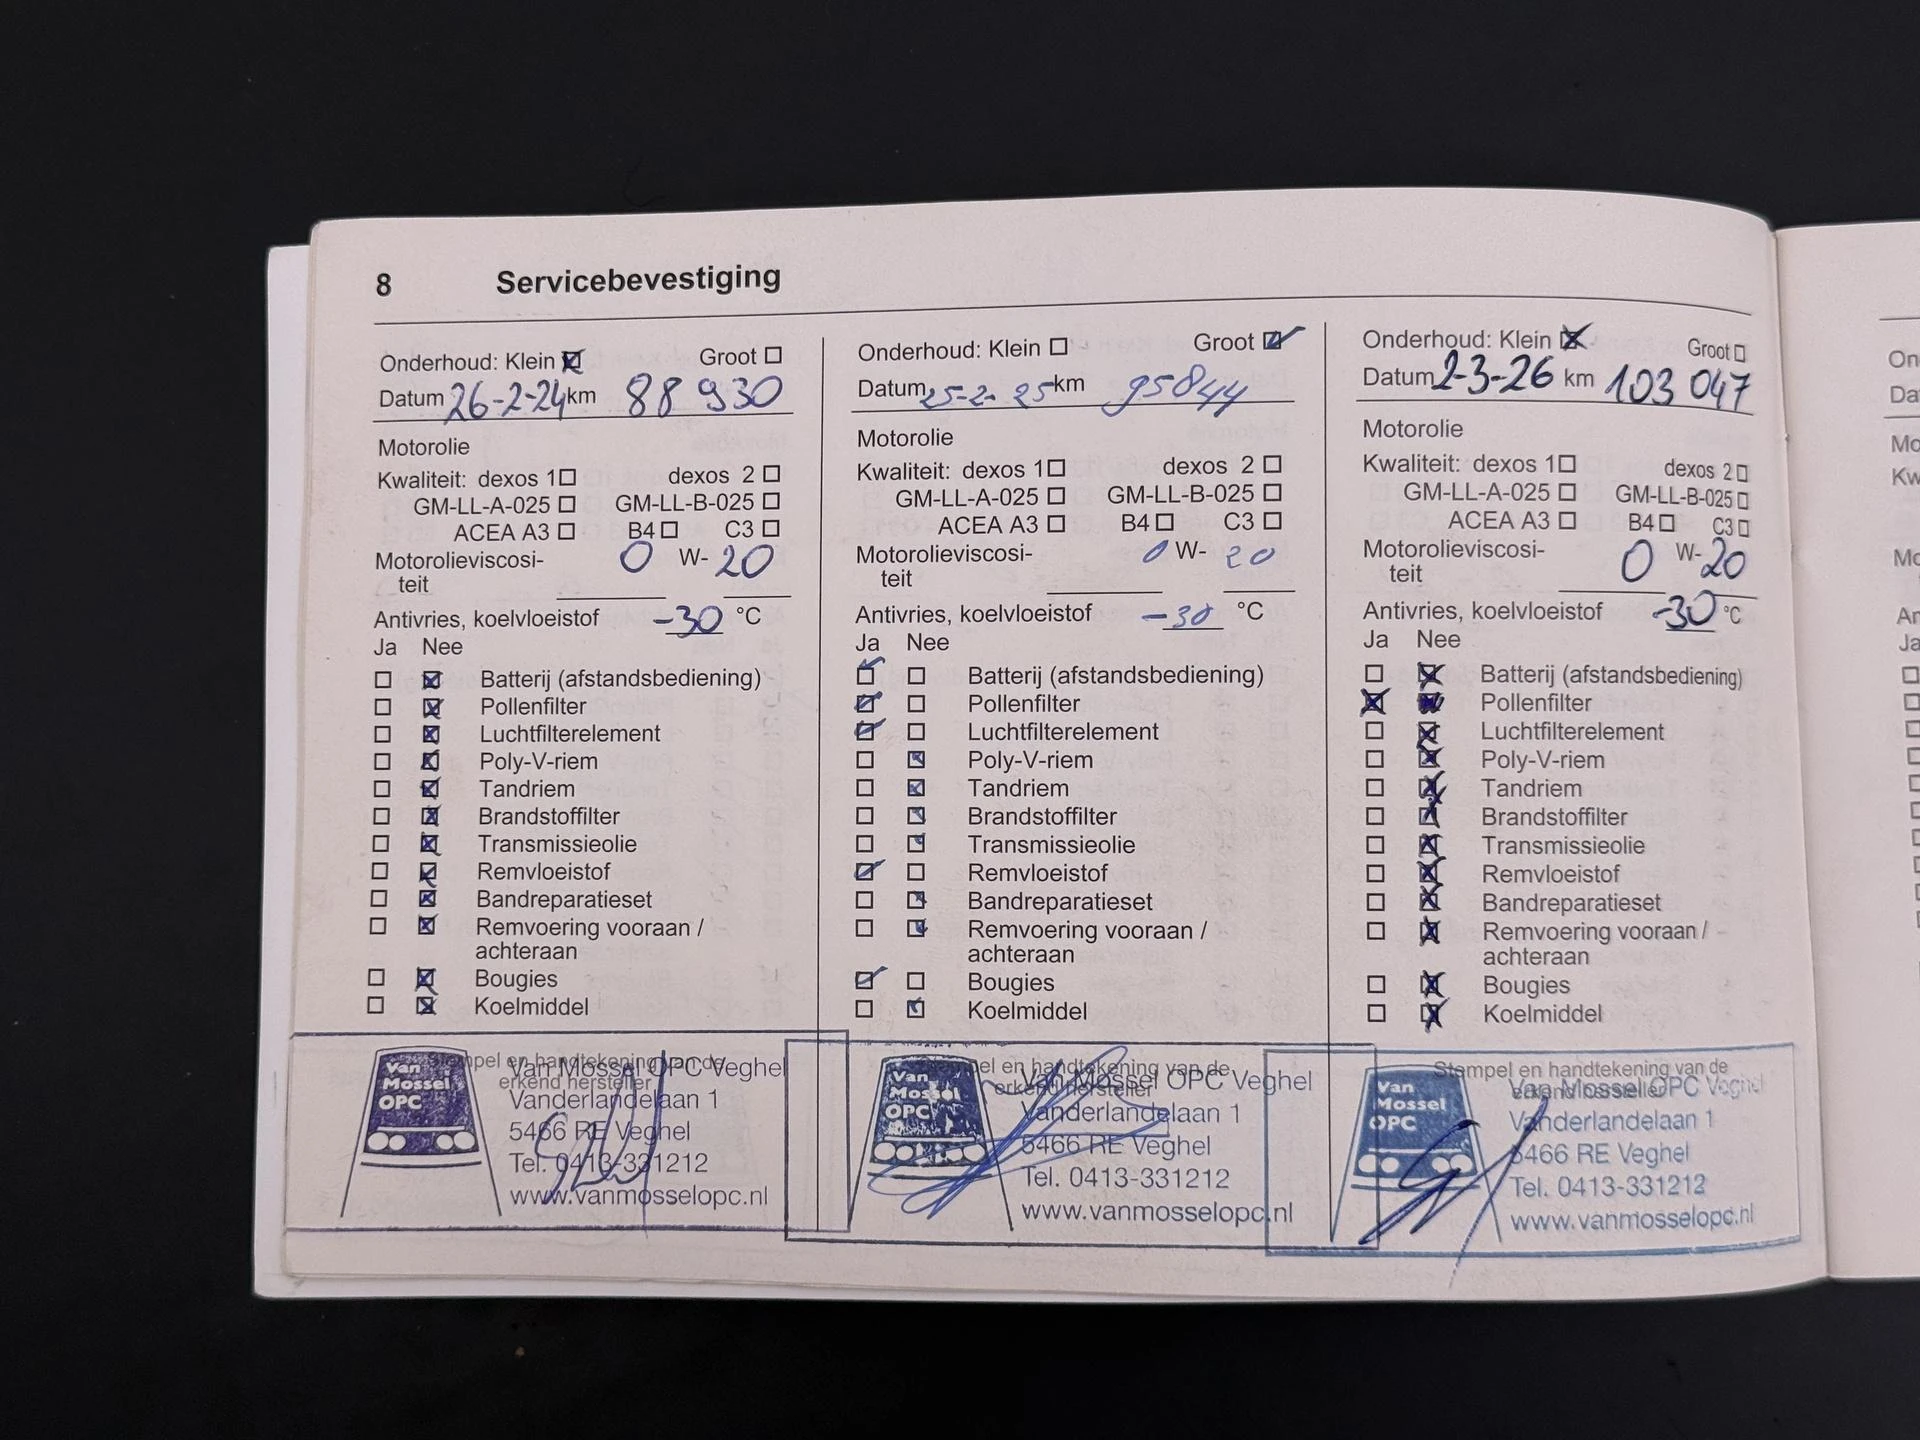 8 Servicebevestiging
Onderhoud: Klein Groot
Datum 26-2-24 km 88 930
Motorolie
Kwaliteit: dexos 1 dexos 2
GM-LL-A-025 GM-LL-B-025
ACEA A3 B4 C3
Motorolieviscosi- 0 W- 20
teit
Antivries, koelvloeistof -30 °C
Ja Nee
Batterij (afstandsbediening)
Pollenfilter
Luchtfilterelement
Poly-V-riem
Tandriem
Brandstoffilter
Transmissieolie
Remvloeistof
Bandreparatieset
Remvoering vooraan /
achteraan
Bougies
Koelmiddel
Stempel en handtekening van de
erkend hersteller
Van Mossel OPC
Van Mossel OPC Veghel
Vanderlandelaan 1
5466 RE Veghel
Tel. 0413-331212
www.vanmosselopc.nl
Onderhoud: Klein Groot
Datum 25-2-25 km 95844
Motorolie
Kwaliteit: dexos 1 dexos 2
GM-LL-A-025 GM-LL-B-025
ACEA A3 B4 C3
Motorolieviscosi- 0 W- 20
teit
Antivries, koelvloeistof -30 °C
Ja Nee
Batterij (afstandsbediening)
Pollenfilter
Luchtfilterelement
Poly-V-riem
Tandriem
Brandstoffilter
Transmissieolie
Remvloeistof
Bandreparatieset
Remvoering vooraan /
achteraan
Bougies
Koelmiddel
Stempel en handtekening van de
erkend hersteller
Van Mossel OPC
Van Mossel OPC Veghel
Vanderlandelaan 1
5466 RE Veghel
Tel. 0413-331212
www.vanmosselopc.nl
Onderhoud: Klein Groot
Datum 2-3-26 km 103 047
Motorolie
Kwaliteit: dexos 1 dexos 2
GM-LL-A-025 GM-LL-B-025
ACEA A3 B4 C3
Motorolieviscosi- 0 W- 20
teit
Antivries, koelvloeistof -30 °C
Ja Nee
Batterij (afstandsbediening)
Pollenfilter
Luchtfilterelement
Poly-V-riem
Tandriem
Brandstoffilter
Transmissieolie
Remvloeistof
Bandreparatieset
Remvoering vooraan /
achteraan
Bougies
Koelmiddel
Stempel en handtekening van de
erkend hersteller
Van Mossel OPC
Van Mossel OPC Veghel
Vanderlandelaan 1
5466 RE Veghel
Tel. 0413-331212
www.vanmosselopc.nl